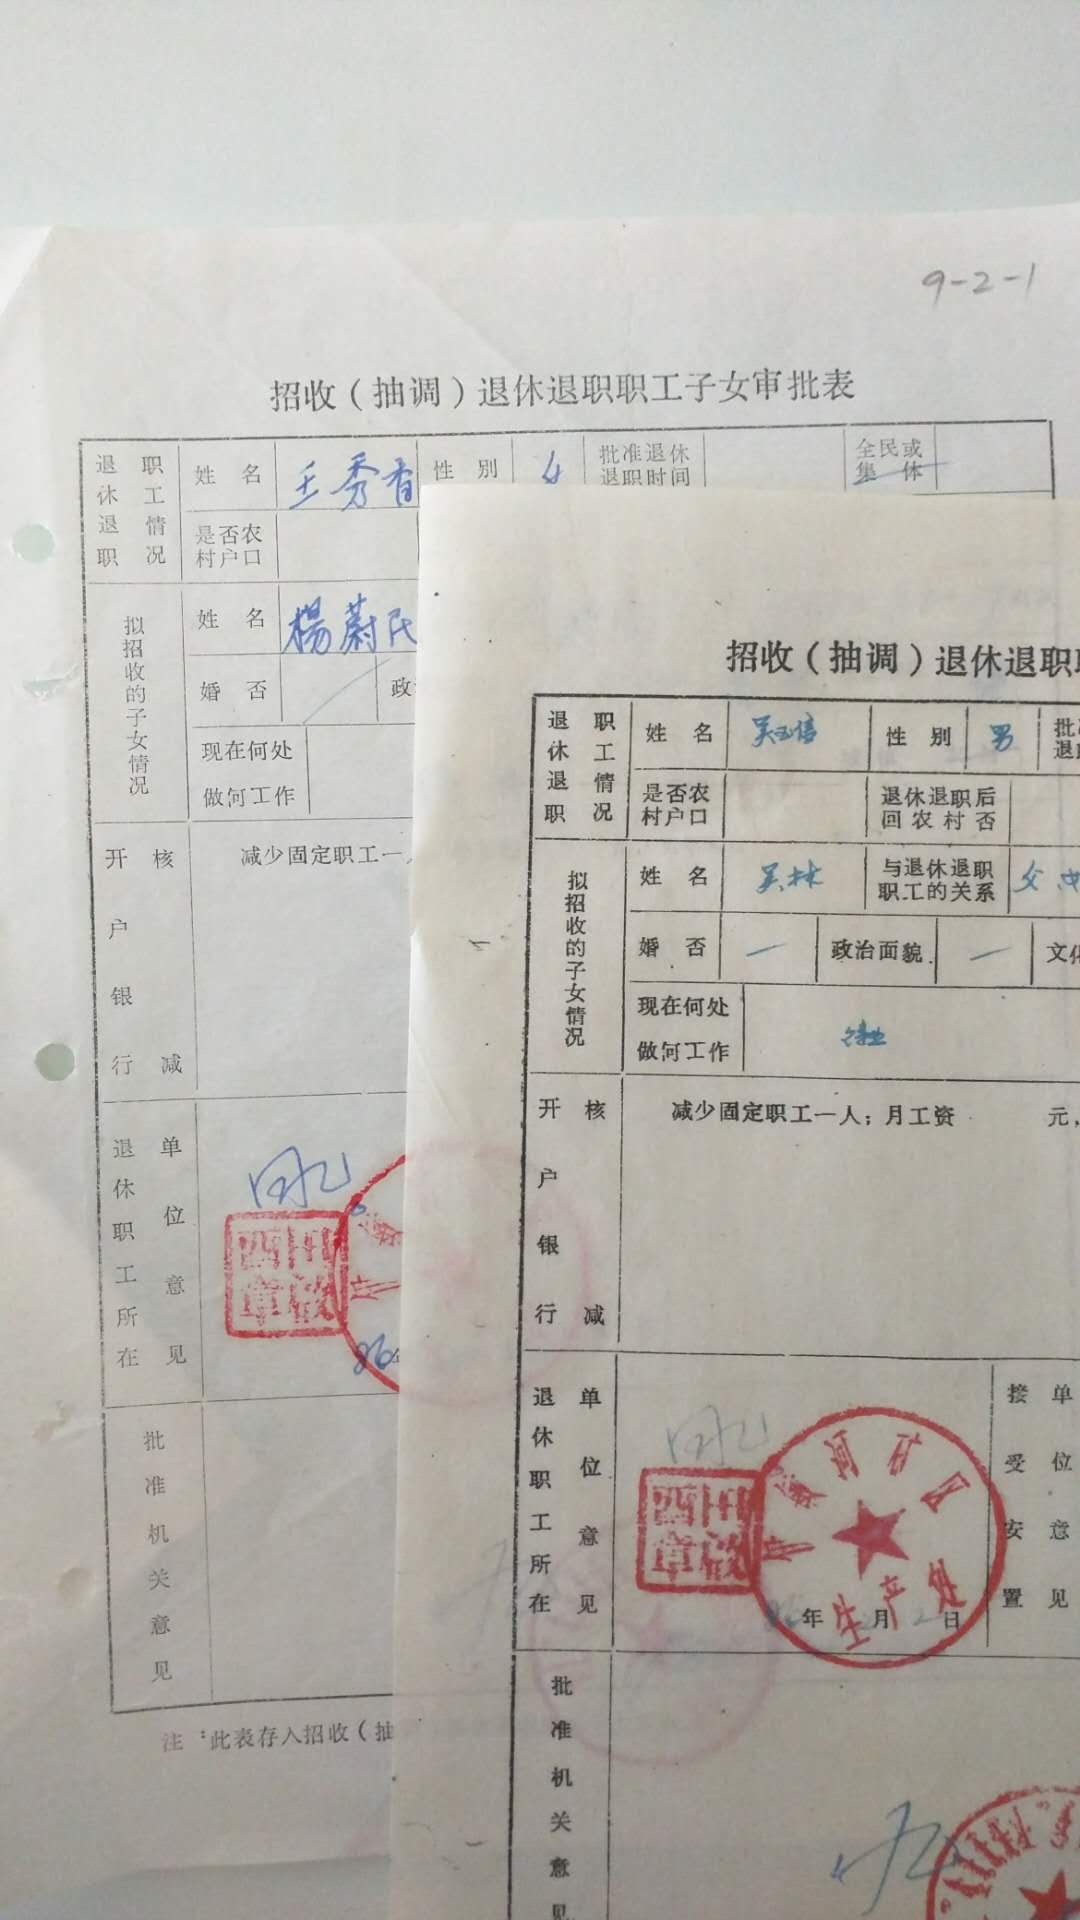 9-2-1
招收（抽调）退休退职职工子女审批表
退休退职 职工情况
姓名 王秀香 性别 女 批准退休退职时间 全民或集体
是否农村户口
拟招收的子女情况
姓名 楊蔚民
婚否 政
现在何处做河工作
开户银行 核减
减少固定职工一人
退休职工所在 单位意见
同意
田欣西章
86
批准机关意见
注：此表存入招收（抽
招收（抽调）退休退职职
退休退职 职工情况
姓名 性别 男 批准退
是否农村户口 退休退职后回农村否
拟招收的子女情况
姓名 吴林 与退休退职职工的关系 父
婚否 一 政治面貌 一 文化
现在何处做河工作 待业
开户银行 核减
减少固定职工一人；月工资 元，
退休职工所在 单位意见
同意
生产处
年 月 2 日
接受安置 单位意见
批准机关意见